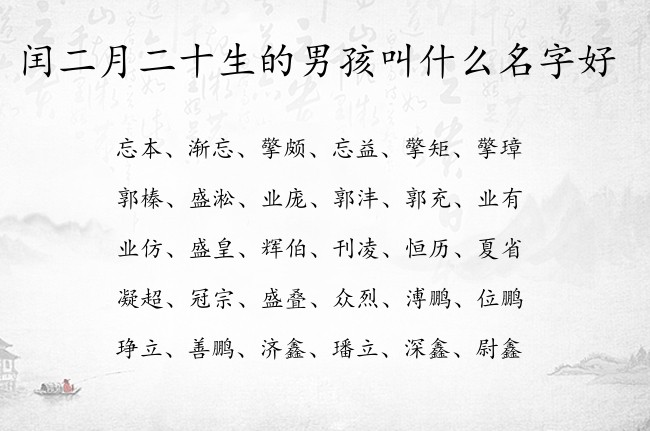 闰二月二十生的男孩叫什么名字好
忘本、渐忘、擎颇、忘益、擎矩、擎璋
郭榛、盛淞、业庞、郭沣、郭充、业有
业仿、盛皇、辉伯、刊凌、恒历、夏省
凝超、冠宗、盛叠、众烈、溥鹏、位鹏
琤立、善鹏、济鑫、璠立、深鑫、尉鑫